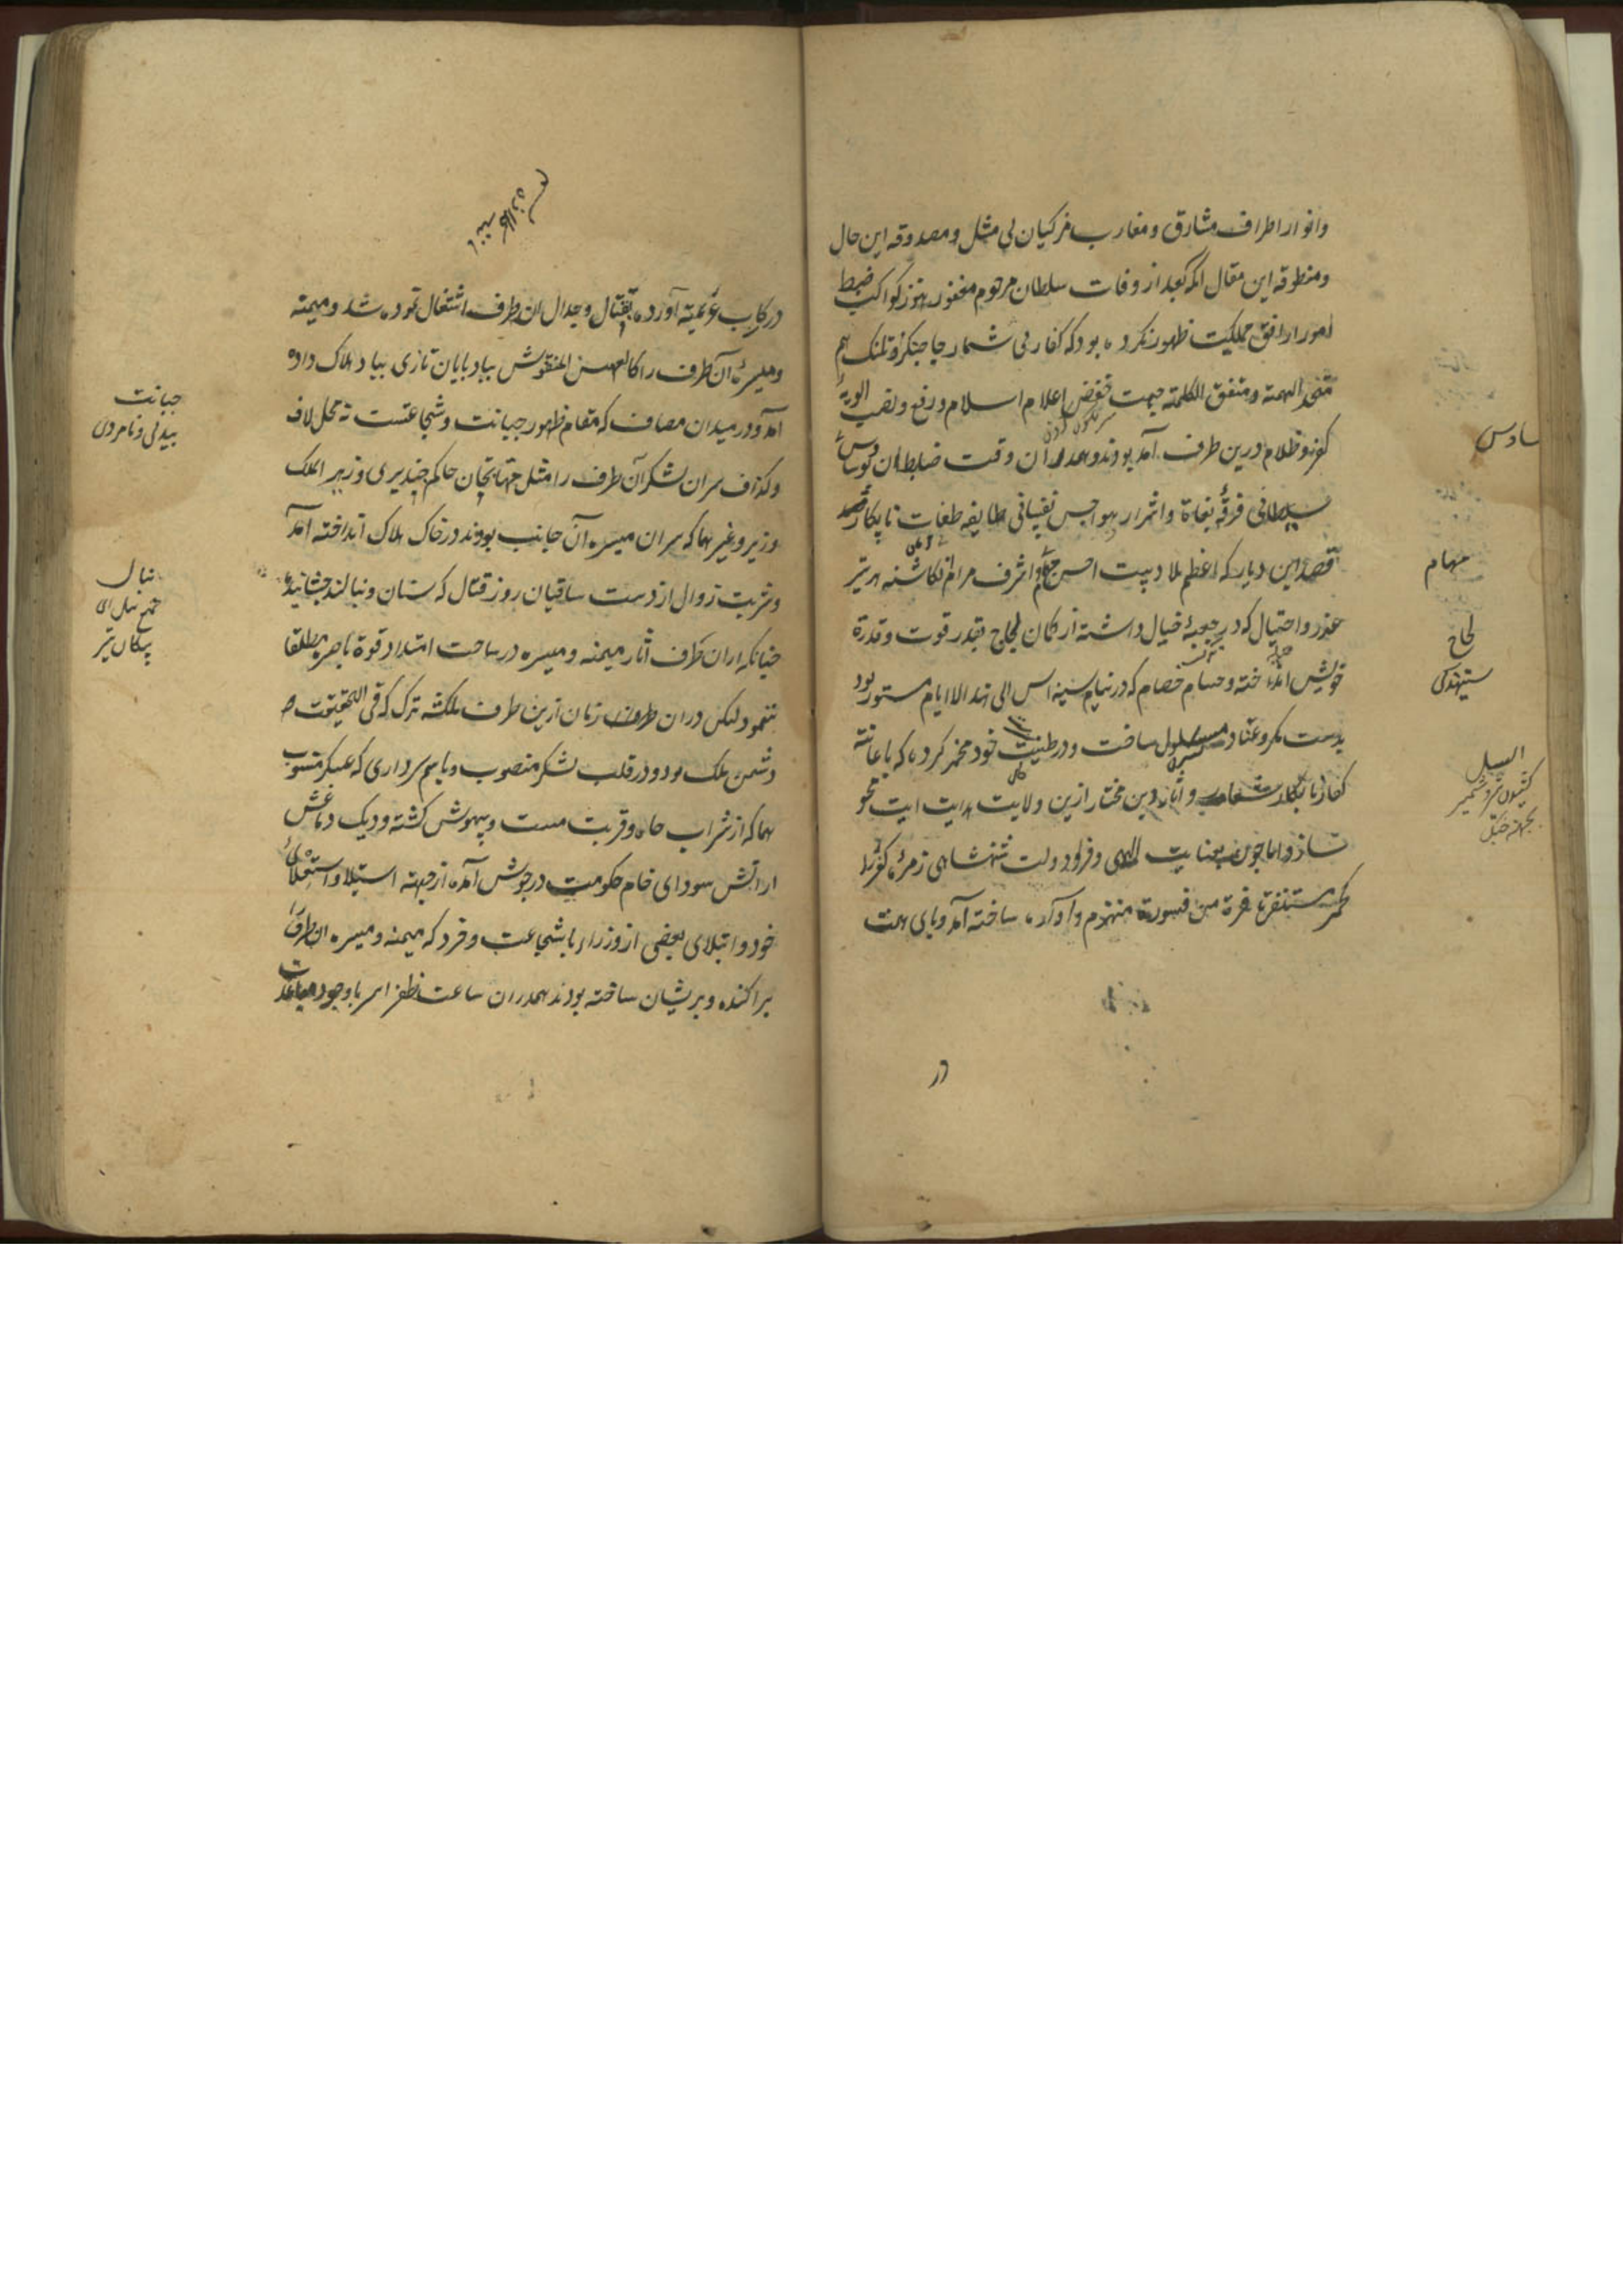 وانوار اطراف مشارق و مغارب مرکیان بی مثل و مصدوقه این حال
و منطوقه این مقال انکه بعد از وفات سلطان مرحوم مغفور هنوز کواکب ضبط
امور از افق مملکت ظهور نکرده بود که کفار بی شمار جاجنکر و تلنک هم
متحد الهمة و متفق الکلمة جهت خفض اعلام اسلام و رفع و نصب الویهٔ
کفر و ظلام درین طرف آمده بودند و همدران وقت ضابطان
شیطانی فرقهٔ بغاة و اشرار بهواجس نفسانی طایفه طغات نابکار
قصد این دیار که اعظم بلادست احسن و اشرف مرام انکاشته هر تیر
عذر و احتیال که در جعبهٔ خیال داشته از کمان لجاج بقدر قوت و قدرة
خویش انداخته و حسام خصام که در نیام سینه اس الی هذا الایام مستور بود
بدست مکر و عناد مسلول ساخت و در طینت خود مخمر کرده که باعانت
کفار نابکار شعار و آثار دین مختار ازین ولایت هدایت ایت محو
سازد اما چون بعنایت الهی و فر دولت شهنشاهی زمرهٔ کفره را
کحمر مستنفرة فرت من قسورة منهزم و آواره ساخته آمد و پای همت
در
سادس
مهام
لجاج
ستیهندکی
السیل
در رکاب عزیمة آورده بقتال و جدال ان طرف اشتغال نموده شد و میمنه
و میسرهٔ آن طرف را کالعهن المنفوش بباد پایان تازی بباد هلاک داده
آمد و در میدان مصاف که مقام ظهور جبانت و شجاعتست نه محل لاف
و کذاف سران لشکر آن طرف را مثل مهابتخان حاکم چندیری و زهیر الملک
وزیر و غیرهما که سران میسره آن جانب بودند در خاک هلاک انداخته آمد
و شربت زوال از دست ساقیان روز قتال که سنان و نبالند چشانیده
چنانکه ازان طرف آثار میمنه و میسره در ساحت امتداد قوة باصره مطلقا
ننمود لیکن دران طرف زمان ازین طرف ملکشه ترک که فی الحقیقت
دشمن ملک بود و در قلب لشکر منصوب و باسم سرداری که عسکر منسوب
هما که از شراب جاه و قربت مست و بیهوش کشته و دیک دماغش
از آتش سودای خام حکومت در جوش آمده از جهة استیلا و استعلای
خود و ابتلای بعضی از وزراء باشجاعت و فر که میمنه و میسره ان طرف را
پراکنده و پریشان ساخته بودند همدران ساعت ظفر اثر باوجود مباعدت
جبانت
بیدلی و نامردی
نبال
جمع نبل ای
پیکان تیر